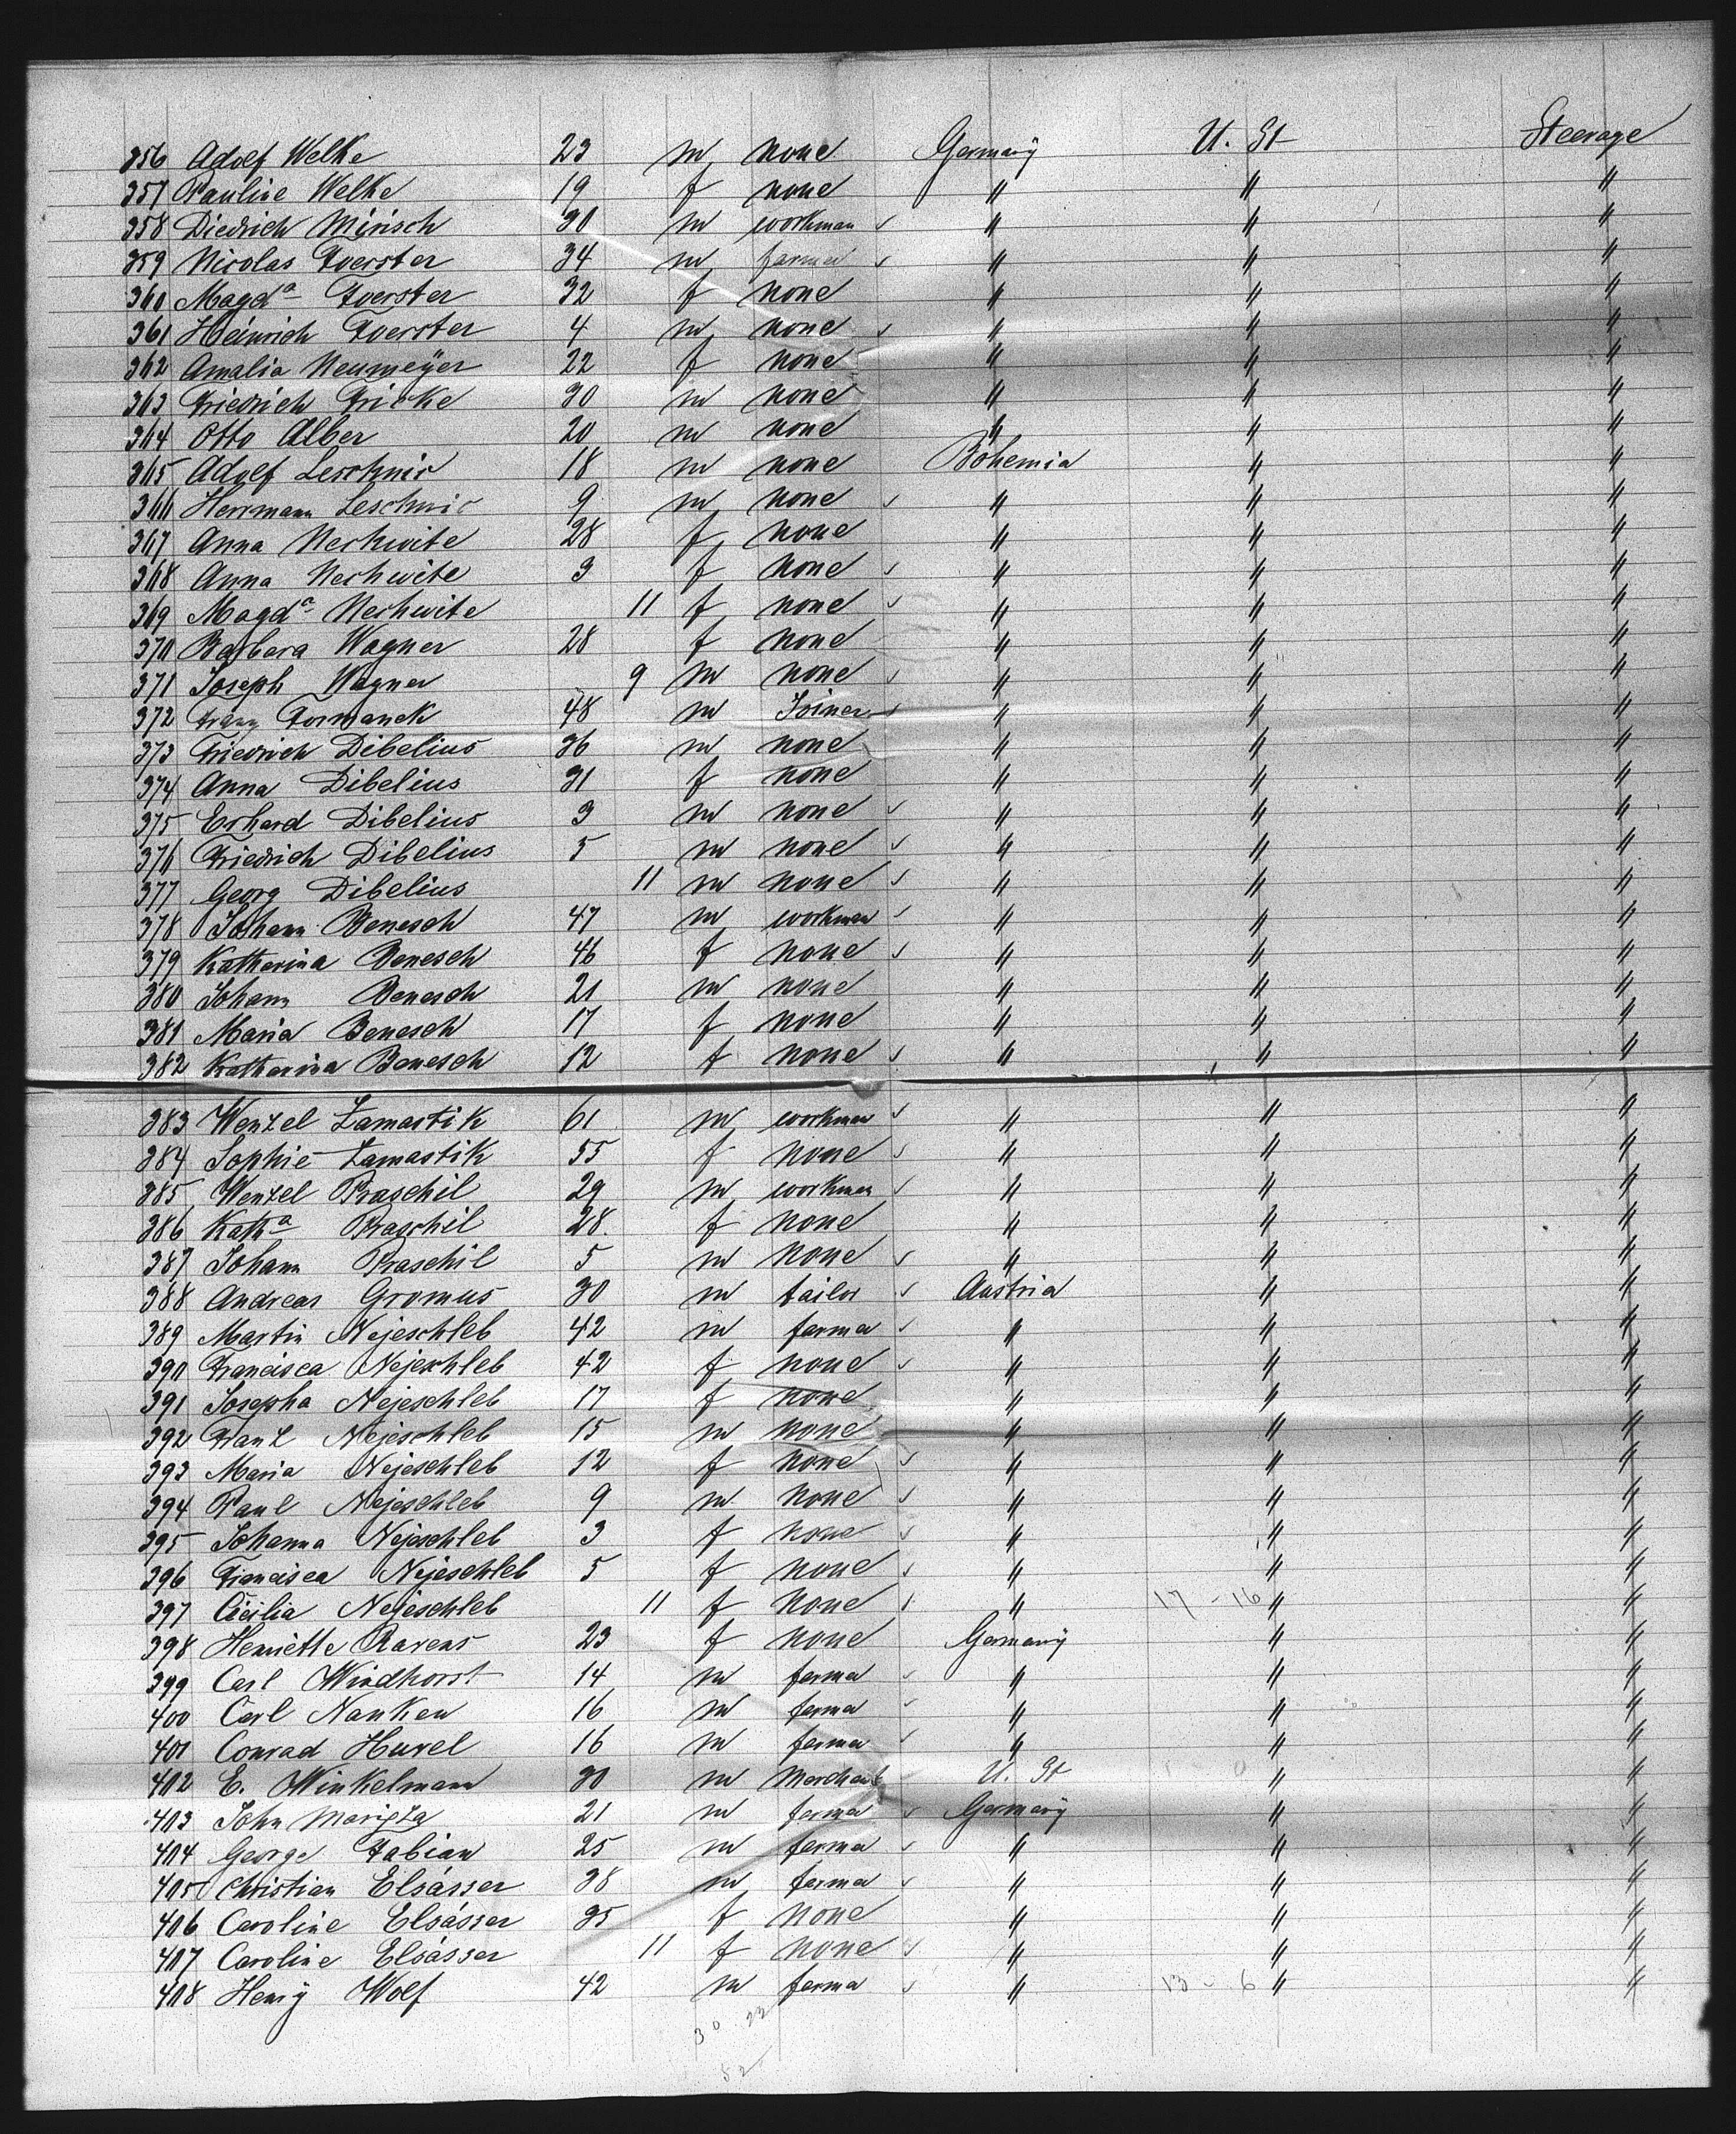 356 Adolf Welke 23 m none Germany U. St Steerage
357 Pauline Welke 19 f none " " "
358 Diedrich Mirisch 30 m workman " " "
359 Nicolas Foerster 34 m farmer " " "
360 Magda Foerster 32 f none " " "
361 Heinrich Foerster 4 m none " " "
362 Amalia Neumeyer 22 f none " " "
363 Friedrich Fricke 30 m none " " "
364 Otto Alber 20 m none " " "
365 Adolf Leschnic 18 m none Bohemia " "
366 Herrmann Leschnic 9 m none " " "
367 Anna Neshwite 28 f none " " "
368 Anna Neshwite 3 f none " " "
369 Magda Neshwite 11 f none " " "
370 Barbara Wagner 28 f none " " "
371 Joseph Wagner 9 m none " " "
372 Franz Formanek 48 m Joiner " " "
373 Friedrich Dibelius 36 m none " " "
374 Anna Dibelius 31 f none " " "
375 Erhard Dibelius 3 m none " " "
376 Friedrich Dibelius 5 m none " " "
377 Georg Dibelius 11 m none " " "
378 Johann Benesch 47 m workman " " "
379 Katherina Benesch 46 f none " " "
380 Johann Benesch 21 m none " " "
381 Maria Benesch 17 f none " " "
382 Katharina Benesch 12 f none " " "
383 Wenzel Zamastik 61 m workman " " "
384 Sophie Zamastik 55 f none " " "
385 Wenzel Praschil 29 m workman " " "
386 Katha Praschil 28 f none " " "
387 Johann Praschil 5 m none " " "
388 Andreas Gromus 30 m tailor Austria " "
389 Martin Nejeschleb 42 m farmer " " "
390 Francisca Nejeschleb 42 f none " " "
391 Josepha Nejeschleb 17 f none " " "
392 Franz Nejeschleb 15 m none " " "
393 Maria Nejeschleb 12 f none " " "
394 Paul Nejeschleb 9 m none " " "
395 Johanna Nejeschleb 3 f none " " "
396 Francisca Nejeschleb 5 f none " " "
397 Cicilia Nejeschleb 11 f none " 17 - 16 " "
398 Henriette Ravens 23 f none Germany " "
399 Carl Windhorst 14 m farmer " " "
400 Carl Nanken 16 m farmer " " "
401 Conrad Huvel 16 m farmer " " "
402 E. Winkelmann 30 m Merchant U. St " "
403 John 21 m farmer Germany " "
404 George Fabian 25 m farmer " " "
405 Christian Elsásser 38 m farmer " " "
406 Caroline Elsásser 35 f none " " "
407 Caroline Elsásser 11 f none " " "
408 Henry Wolf 42 m farmer " 13 - 6 " "
30 22
52